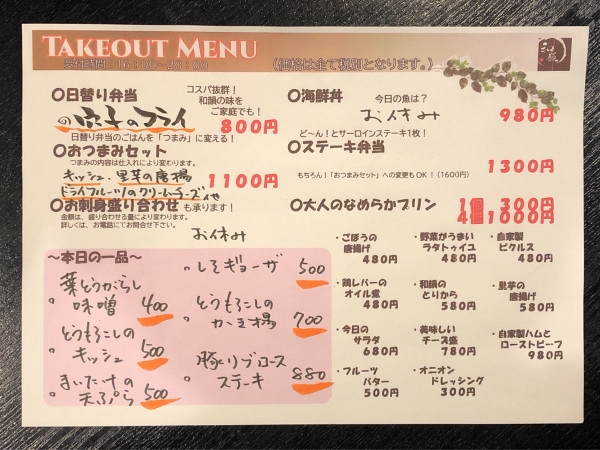 TAKEOUT MENU
受付時間：16：00～20：00
（価格は全て税別となります。）
〇日替り弁当
コスパ抜群！
和韻の味を
ご家庭でも！
のフライ
800円
日替り弁当のごはんを「つまみ」に変える！
〇おつまみセット
つまみの内容は仕入れにより変わります。
キッシュ、里芋の唐揚
ドライフルーツ/のクリームチーズ
1100円
〇お刺身盛り合わせも承ります！
金額は、盛り合わせる量により変わります。
詳しくは、お電話にてお問合せ下さい。
お休み
〇海鮮丼
今日の魚は？
お休み
980円
ど～ん！とサーロインステーキ1枚！
〇ステーキ弁当
1300円
もちろん！「おつまみセット」への変更もOK！（1600円）
〇大人のなめらかプリン
1個 300円
4個1,000円
～本日の一品～
葉とうがらし
味噌 400
とうもろこしの
キッシュ 500
まいたけの
天ぷら 500
しそギョーザ 500
とうもろこしの
かき揚 700
豚リブロース
ステーキ 880
・ごぼうの
唐揚げ
480円
・野菜がうまい
ラタトゥイユ
480円
・自家製
ピクルス
480円
・鶏レバーの
オイル煮
480円
・和韻の
とりから
580円
・里芋の
唐揚げ
580円
・今日の
サラダ
680円
・美味しい
チーズ盛
780円
・自家製ハムと
ローストビーフ
980円
・フルーツ
バター
500円
・オニオン
ドレッシング
300円